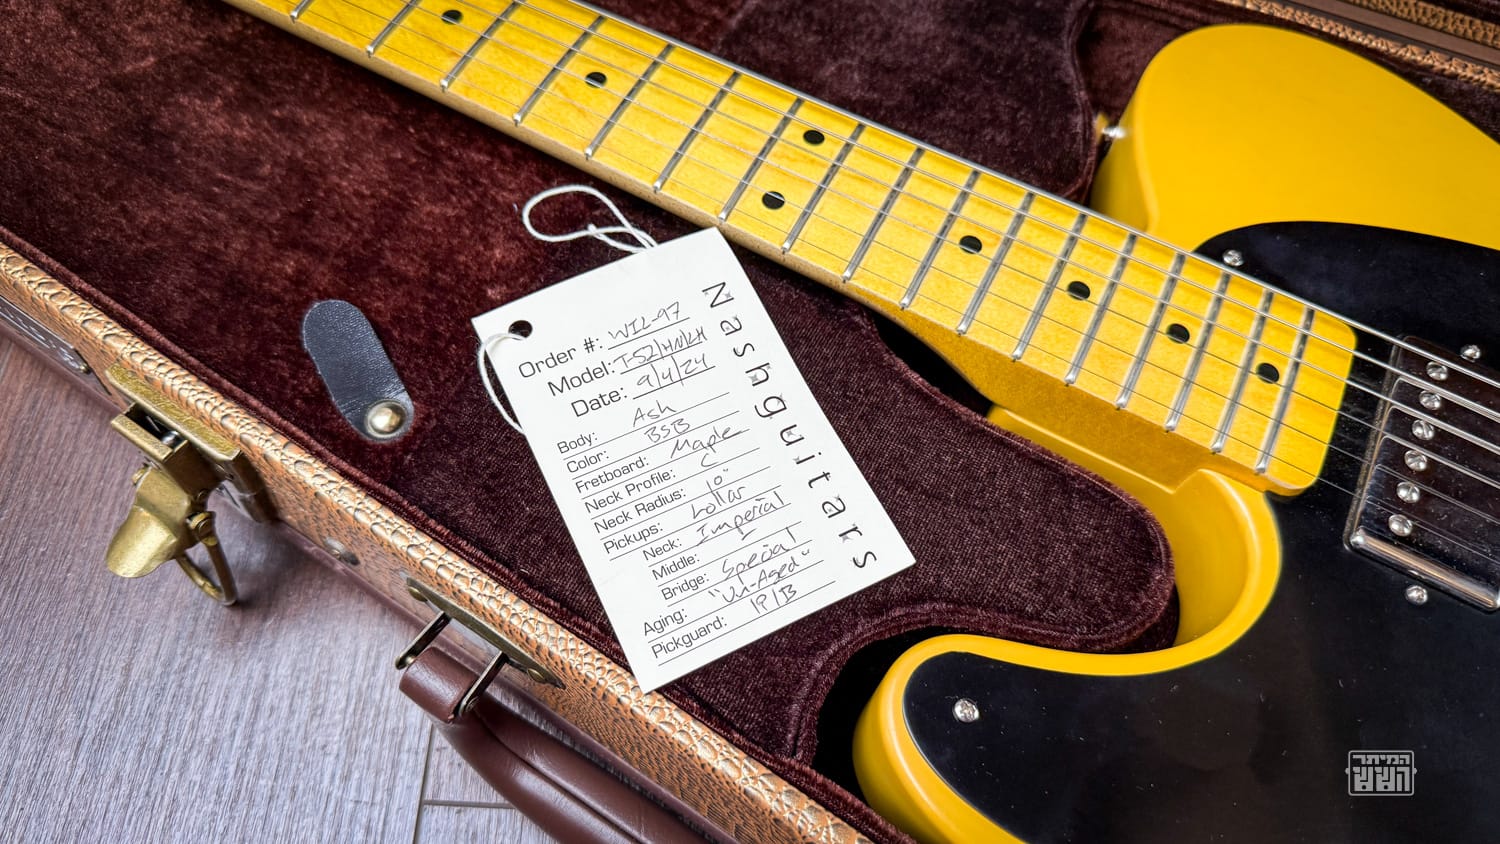 Nashguitars
Order #: WIL-97
Model: T-52/HN/LH
Date: 9/4/24
Body: Ash
Color: BSB
Fretboard: Maple
Neck Profile: C
Neck Radius: 10"
Pickups: Lollar
Neck: Imperial
Middle: –
Bridge: Special
Aging: "Un-Aged"
Pickguard: 1P/B
המיתר
הששי